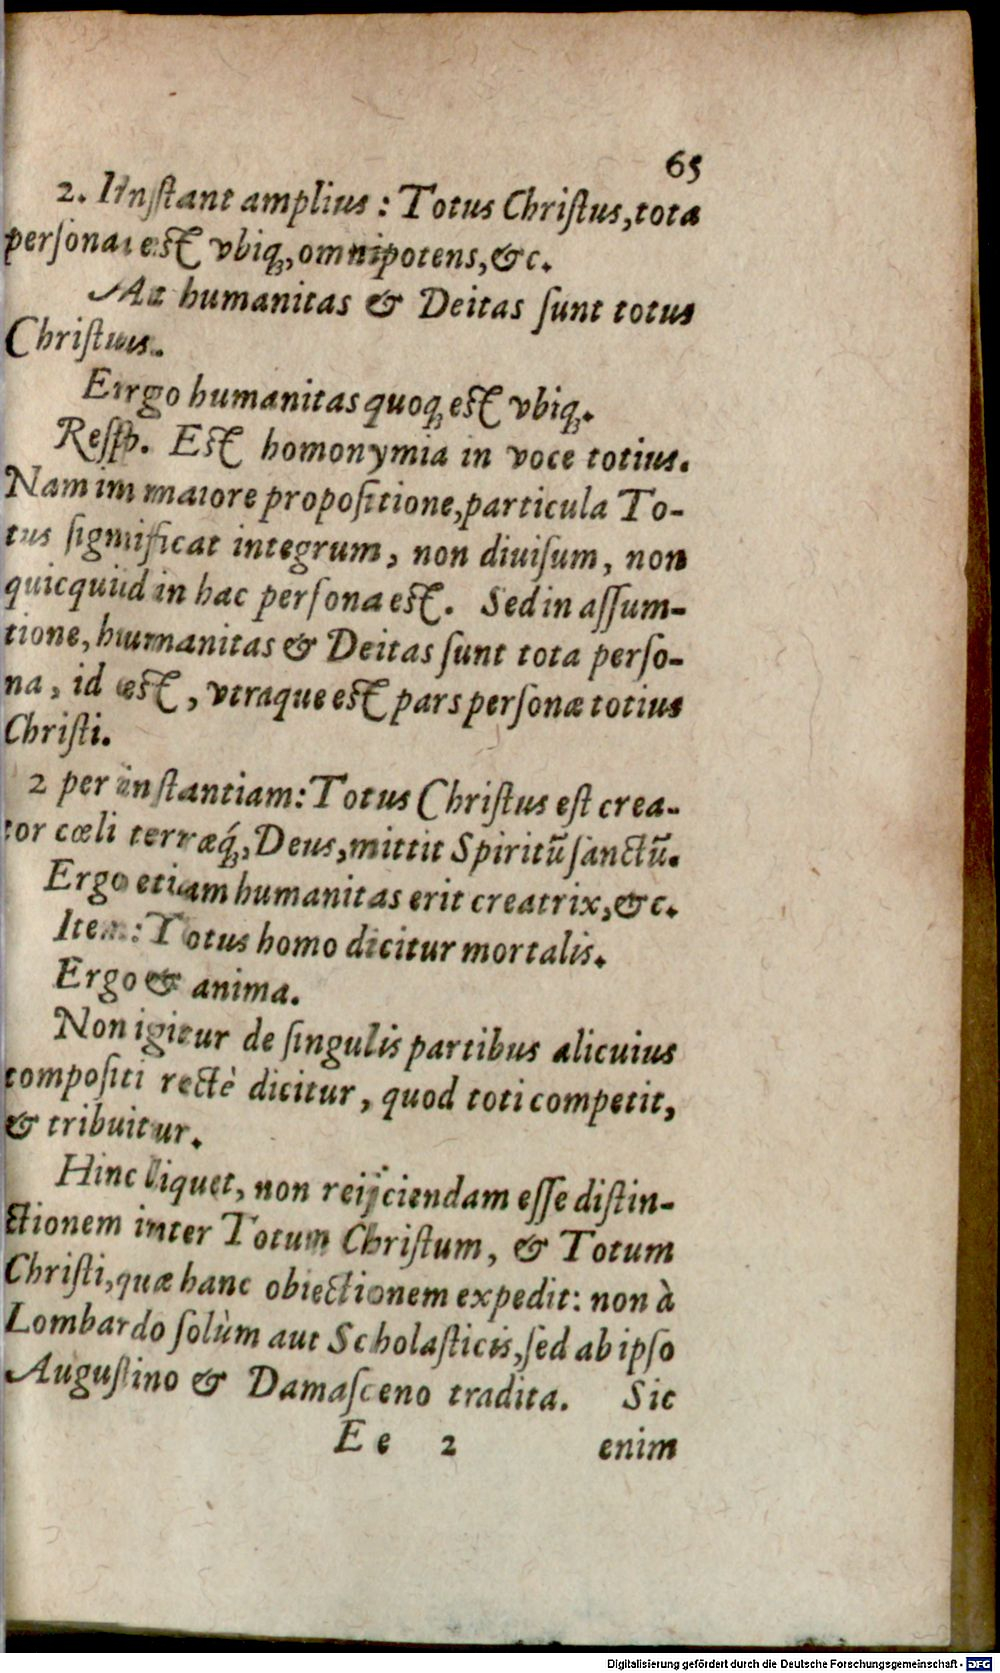 65
2. Instant amplius: Totus Christus, tota
persona est vbiq;, omnipotens, &c.
At humanitas & Deitas sunt totus
Christus.
Ergo humanitas quoq; est vbiq;.
Resp. Est homonymia in voce totius.
Nam in maiore propositione, particula To-
tus significat integrum, non diuisum, non
quicquid in hac persona est. Sed in assum-
tione, humanitas & Deitas sunt tota perso-
na, id est, vtraque est pars personæ totius
Christi.
2 per instantiam: Totus Christus est crea-
tor cœli terræq́;, Deus, mittit Spiritũ sanctũ.
Ergo etiam humanitas erit creatrix, &c.
Item: Totus homo dicitur mortalis.
Ergo & anima.
Non igitur de singulis partibus alicuius
compositi rectè dicitur, quod toti competit,
& tribuitur.
Hinc liquet, non reijciendam esse distin-
ctionem inter Totum Christum, & Totum
Christi, quæ hanc obiectionem expedit: non à
Lombardo solùm aut Scholasticis, sed ab ipso
Augustino & Damasceno tradita. Sic
E e 2 enim
Digitalisierung gefördert durch die Deutsche Forschungsgemeinschaft - DFG